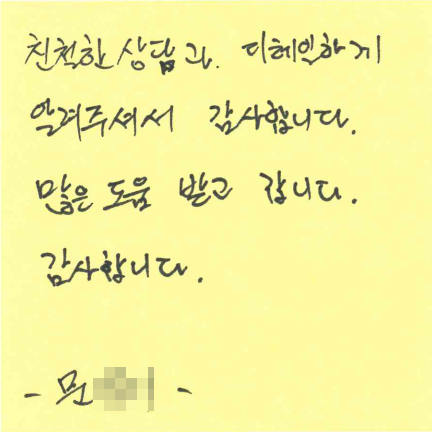 친척한 상담과. 디헤일하게
알려주셔서 감사합니다.
많은 도움 받고 갑니다.
감사합니다.
- 문 -